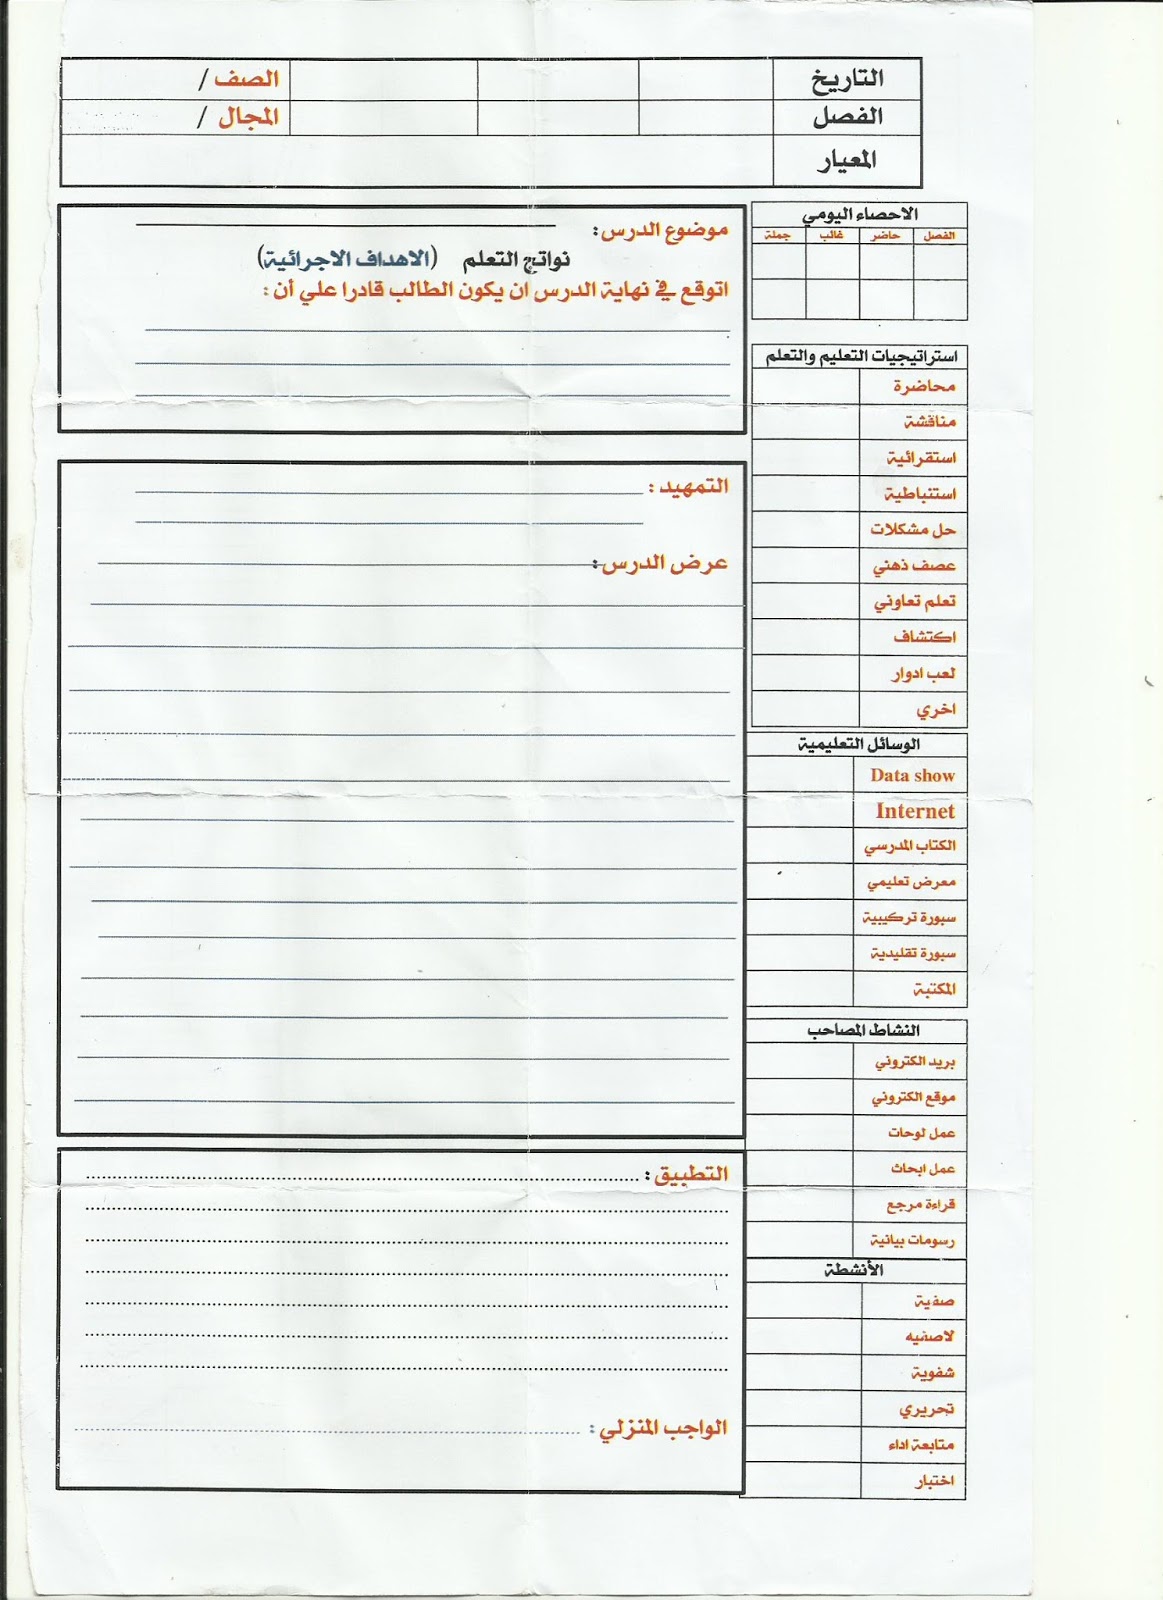 التاريخ الصف /
الفصل المجال /
المعيار
الاحصاء اليومي
الفصل حاضر غائب جملة
موضوع الدرس:
نواتج التعلم (الاهداف الاجرائية)
اتوقع في نهاية الدرس ان يكون الطالب قادرا علي أن :
استراتيجيات التعليم والتعلم
محاضرة
مناقشة
استقرائية
استنباطية
حل مشكلات
عصف ذهني
تعلم تعاوني
اكتشاف
لعب ادوار
اخري
التمهيد :
عرض الدرس:
الوسائل التعليمية
Data show
Internet
الكتاب المدرسي
معرض تعليمي
سبورة تركيبية
سبورة تقليدية
المكتبة
النشاط المصاحب
بريد الكتروني
موقع الكتروني
عمل لوحات
عمل ابحاث
قراءة مرجع
رسومات بيانية
التطبيق :
الواجب المنزلي :
الأنشطة
صفية
لاصفيه
شفوية
تحريري
متابعة اداء
اختبار